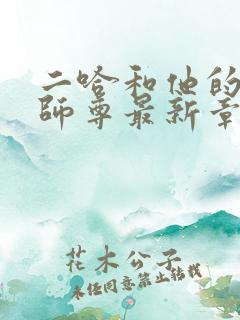 二哈和他的
師尊最新章
花木公子
未经同意禁止转载